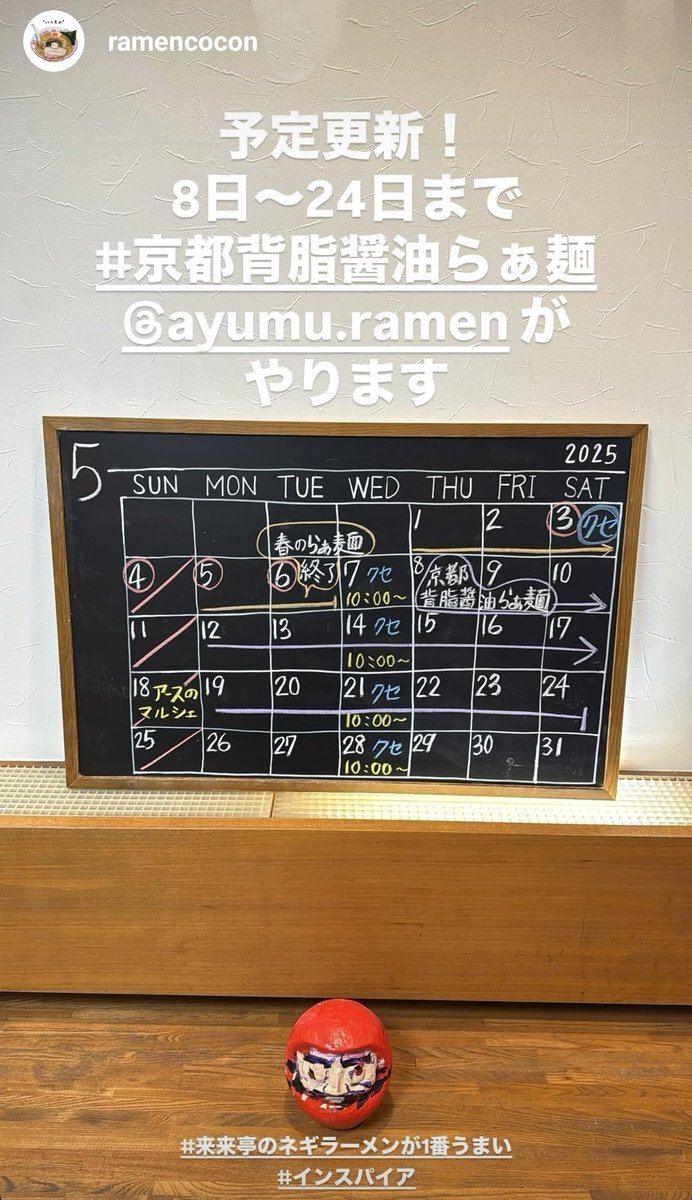 ramencocon
予定更新！
8日〜24日まで
#京都背脂醤油らぁ麺
@ayumu.ramen が
やります
5
2025
SUN MON TUE WED THU FRI SAT
1 2 3 クセ
春のらぁ麺
4 5 6 終了 7 クセ 8 京都 9 10
10:00～ 背脂醤油らぁ麺
11 12 13 14 クセ 15 16 17
10:00～
18 アースの 19 20 21 クセ 22 23 24
マルシェ 10:00～
25 26 27 28 クセ 29 30 31
10:00～
#来来亭のネギラーメンが1番うまい
#インスパイア